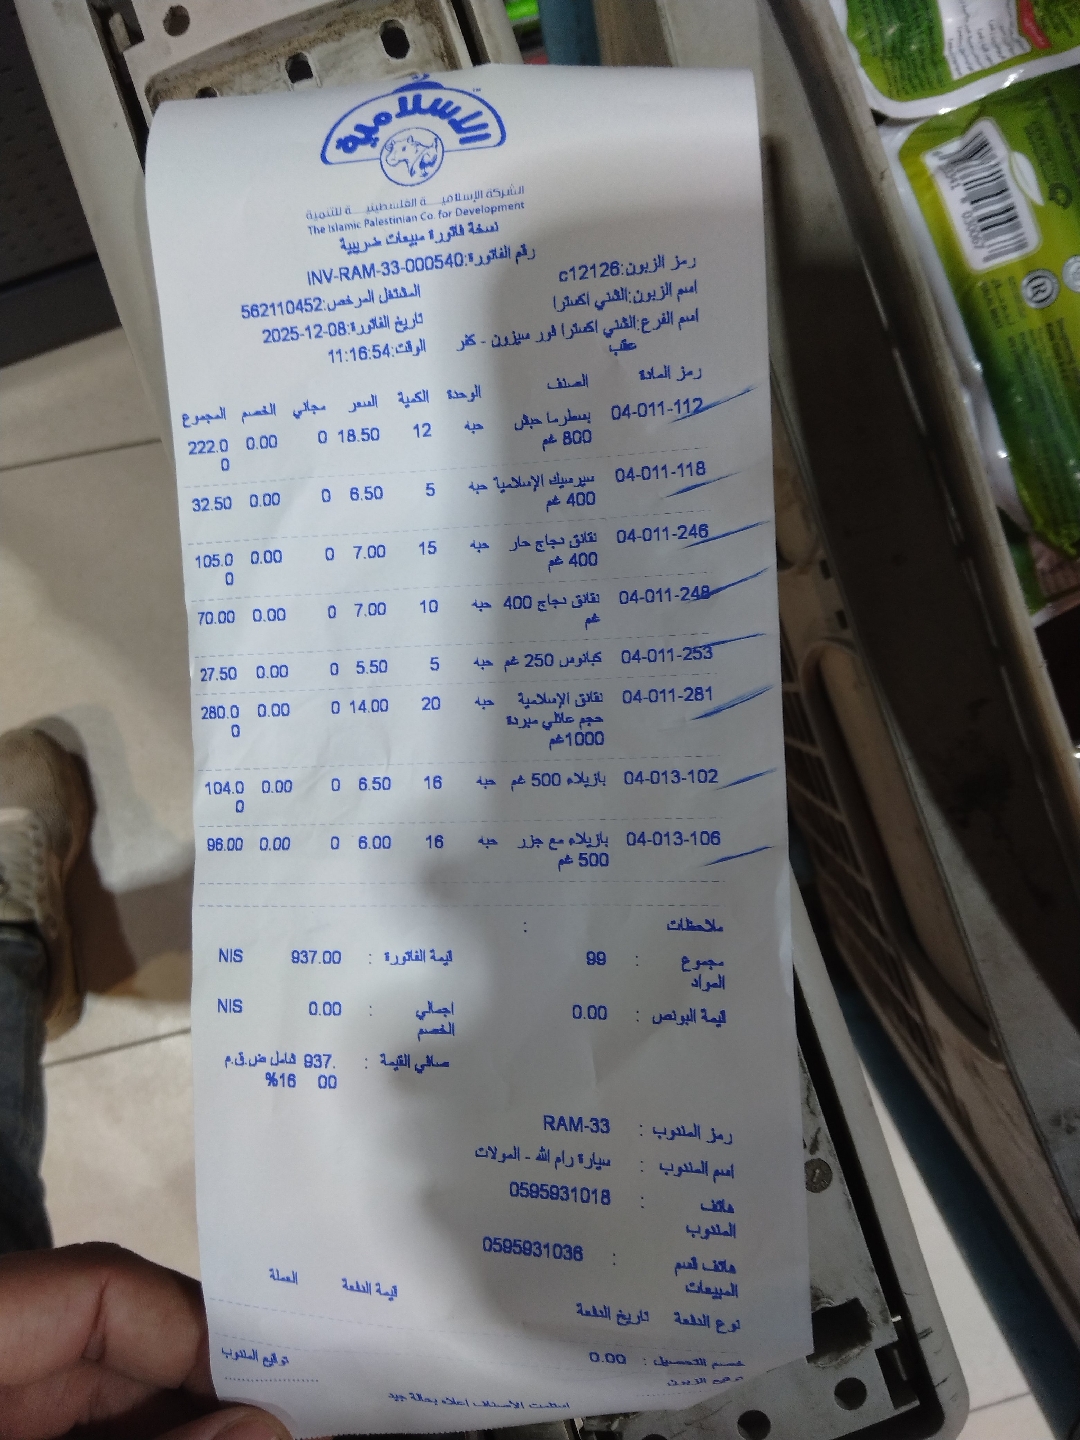 الإسلامية
الشركة الإسلامية الفلسطينية للتنمية
The Islamic Palestinian Co. for Development
نسخة فاتورة مبيعات ضريبية
رقم الفاتورة:INV-RAM-33-000540
رمز الزبون:c12126 المشتغل المرخص:562110452
اسم الزبون:الشني اكسترا تاريخ الفاتورة:2025-12-08
اسم الفرع:الشني اكسترا فور سيزون - كفر الوقت:11:16:54
عقب
رمز المادة الصنف الوحدة الكمية السعر مجاني الخصم المجموع
04-011-112 بسطرما حبش حبه 12 18.50 0 0.00 222.0
800 غم 0
04-011-118 سيرسيك الإسلامية حبه 5 6.50 0 0.00 32.50
400 غم
04-011-246 نقانق دجاج حار حبه 15 7.00 0 0.00 105.0
400 غم 0
04-011-248 نقانق دجاج 400 حبه 10 7.00 0 0.00 70.00
غم
04-011-253 كبانوس 250 غم حبه 5 5.50 0 0.00 27.50
04-011-281 نقانق الإسلامية حبه 20 14.00 0 0.00 280.0
حجم عائلي مبردة 0
1000غم
04-013-102 بازيلاء 500 غم حبه 16 6.50 0 0.00 104.0
0
04-013-106 بازيلاء مع جزر حبه 16 6.00 0 0.00 96.00
500 غم
ملاحظات :
مجموع : 99 قيمة الفاتورة : 937.00 NIS
المواد
قيمة البونص : 0.00 اجمالي : 0.00 NIS
الخصم
صافي القيمة : 937. شامل ض.ق.م
00 16%
رمز المندوب : RAM-33
اسم المندوب : سيارة رام الله - المولات
هاتف : 0595931018
المندوب
هاتف قسم : 0595931036
المبيعات
نوع الدفعة تاريخ الدفعة قيمة الدفعة العملة
خصم التحصيل : 0.00
توقيع المندوب
استلمت الأصناف اعلاه بحالة جيد